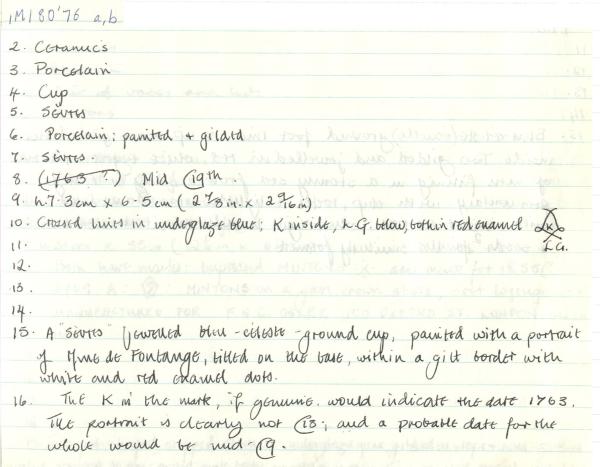 1M180'76 a,b
2. Ceramics
3. Porcelain
4. Cup
5. Sèvres
6. Porcelain; painted + gilded
7. Sèvres.
8. (1763?) Mid 19th.
9. h7.3cm x 6.5cm (2 7/8 in. x 2 9/16 in)
10. Crossed lines in underglaze blue; K inside, L G. below, both in red enamel K L G.
11.
12.
13.
14.
15. A "Sèvres" jewelled bleu-céleste-ground cup, painted with a portrait
of Mme de Fontange, titled on the base, within a gilt border with
white and red enamel dots.
16. The K in the mark, if genuine would indicate the date 1763.
The portrait is clearly not 18; and a probable date for the
whole would be mid-19.